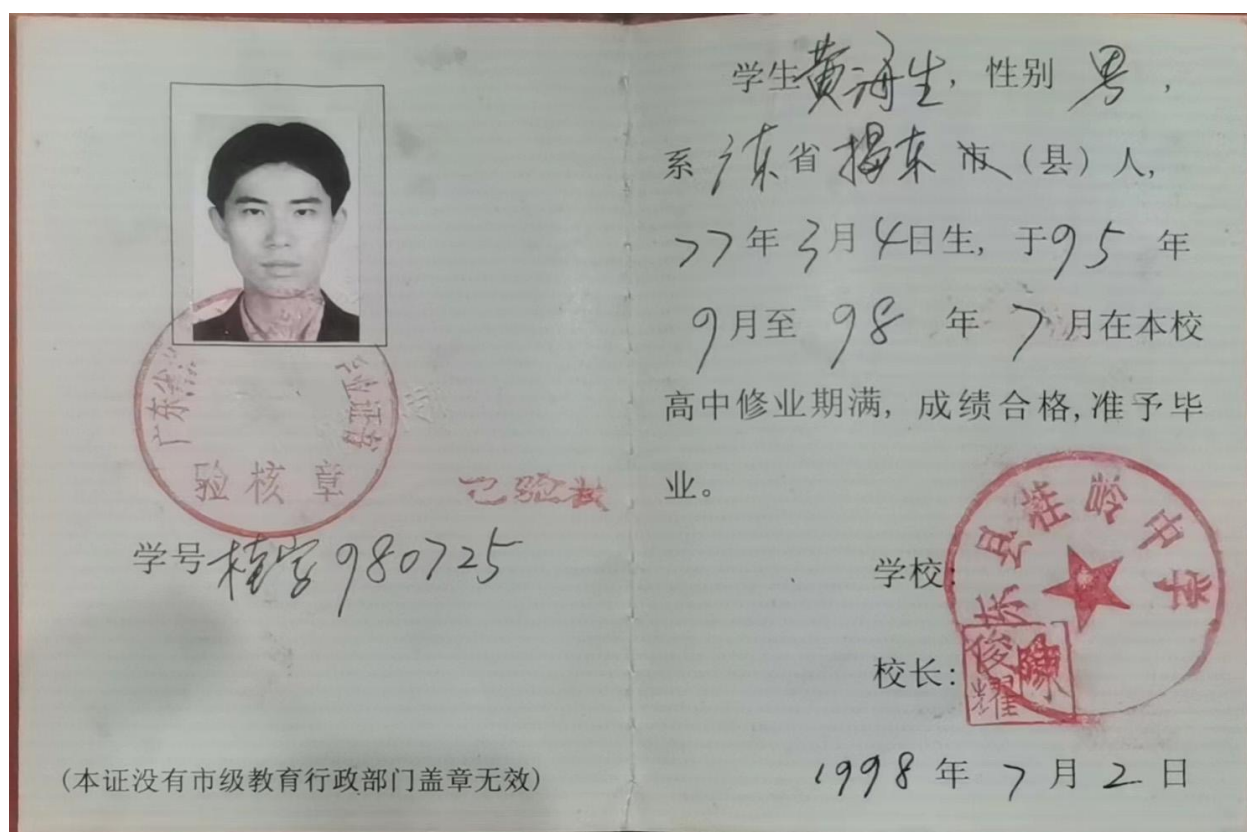 验核章
已验核
学号 桂字980725
(本证没有市级教育行政部门盖章无效)
学生黄海生，性别 男，
系 广东省揭东市（县）人，
77年3月4日生，于95年
9月至 98 年 7月在本校
高中修业期满，成绩合格，准予毕
业。
学校：
东县桂岭中学
校长：
陈俊耀
1998年7月2日